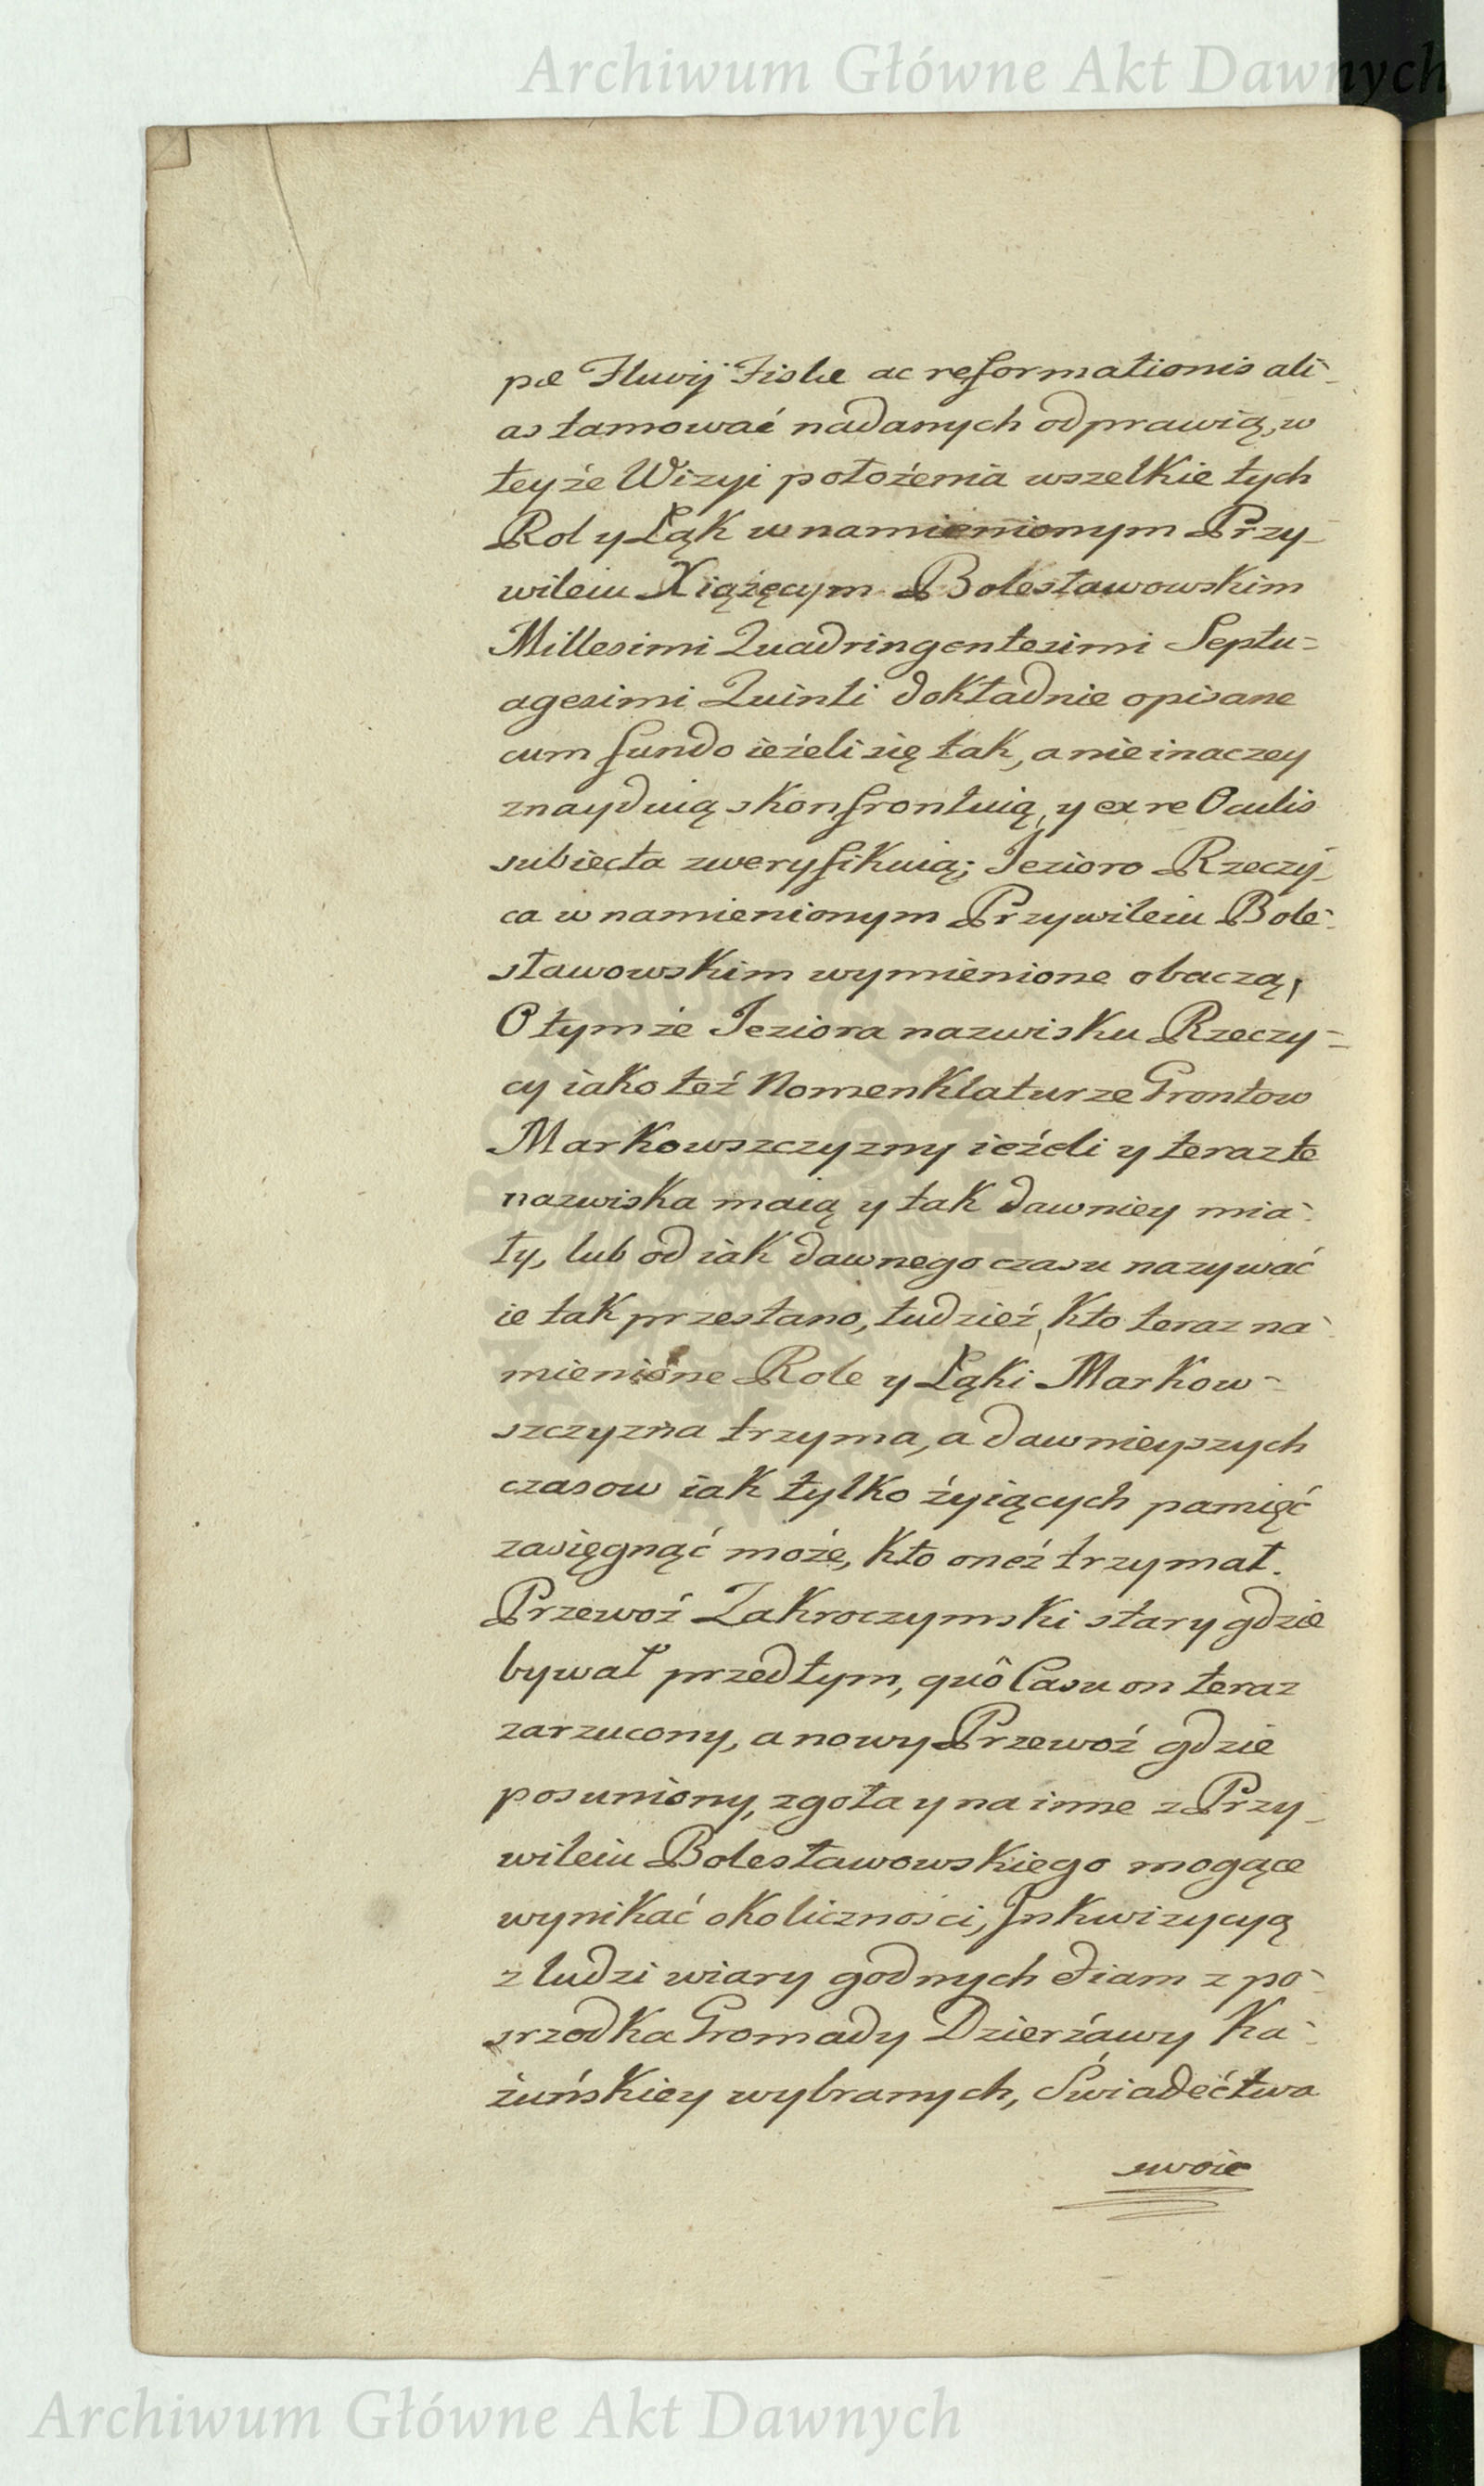 Archiwum Główne Akt Dawnych
pæ Fluvij Fislæ ac reformationis ali-
as tamować nadanych odprawią, w
teyże Wizyi położenia wszelkie tych
Rol y Łąk w namienionym Przy-
wileiu Xiążęcym Bolesławowskim
Millesimi Quadringentesimi Septu=
agesimi Quinti dokładnie opisane
cum fundo ieżeli się tak, a nie inaczey
znayduią skonfrontuią, y ex re Oculis
subiecta zweryfikuią; Jezioro Rzeczy-
ca w namienionym Przywileiu Bole-
sławowskim wymienione obaczą,
O tymże Jeziora nazwisku Rzeczy=
cy iako też Nomenklaturze Grontow
Markowszczyzny ieżeli y teraz te
nazwiska maią y tak dawniey mia-
ły, lub od iak dawnego czasu nazywać
ie tak przestano, tudzież, kto teraz na-
mienione Role y Łąki Markow-
szczyzna trzyma, a dawnieyszych
czasow iak tylko żyiących pamięć
zasięgnąć może, kto oneż trzymał.
Przewoź Zakroczymski stary gdzie
bywał przedtym, quô Casu on teraz
zarzucony, a nowy Przewoź gdzie
posuniony, zgoła y na inne z Przy-
wileiu Bolesławowskiego mogące
wynikać okoliczności, Inkwizycyą
z ludzi wiary godnych etiam z po-
srzodka Gromady Dzierżawy Ka-
zuńskiey wybranych, Świadectwa
swoie
Archiwum Główne Akt Dawnych